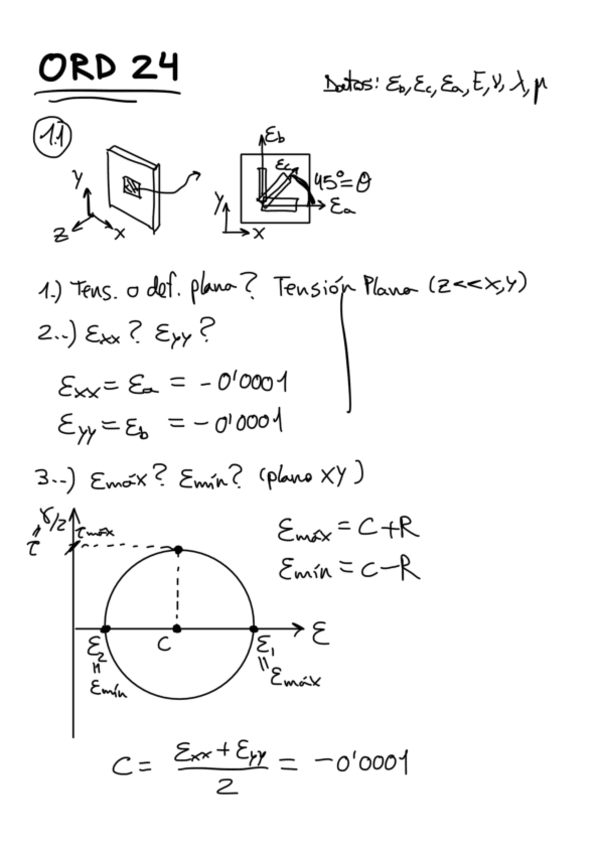 ORD 24
Datos: εb, εc, εa, E, ν, λ, μ
1.1
εb
εc
45°=θ
εa
Y
X
Z
Y
X
1.) Tens. o def. plana? Tensión Plana (Z<<X,Y)
2..) εxx? εyy?
εxx = εa = -0'0001
εyy = εb = -0'0001
3..) εmáx? εmín? (plano XY)
γ/2
=
τ
τmáx
εmáx = C+R
εmín = C-R
ε2
=
εmín
C
ε1
=
εmáx
ε
C = (εxx + εyy)/2 = -0'0001